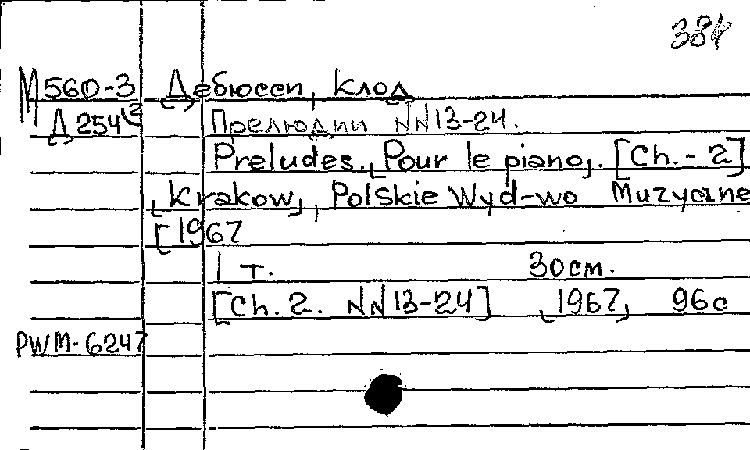 384
М560-3 Дебюсси, Клод
Д254
Прелюдии NN13-24.
Preludes. Pour le piano. [Ch.-2]
Krakow, Polskie Wyd-wo Muzyczne
[1967
1 т. 30см.
[Ch. 2. NN13-24] 1967, 96с
PWM-6247